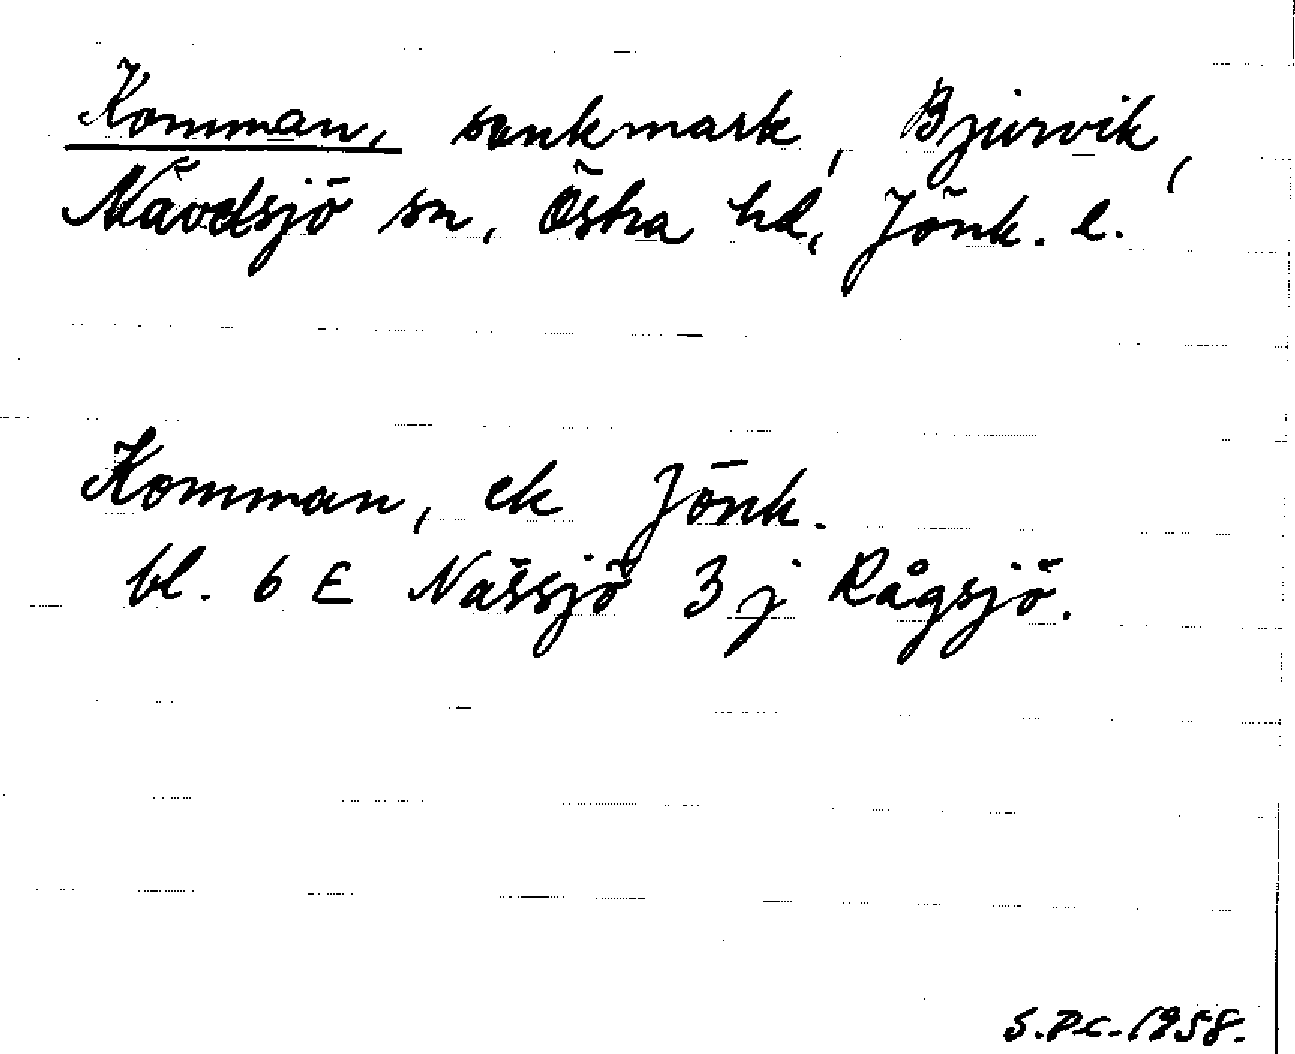 Komman, sankmark, Bjurvik,
Nävelsjö sn, Östra hd, Jönk. l.
Komman, ek Jönk.
bl. 6 E Nässjö 3 j Rågsjö.
S.P.C. 1958.